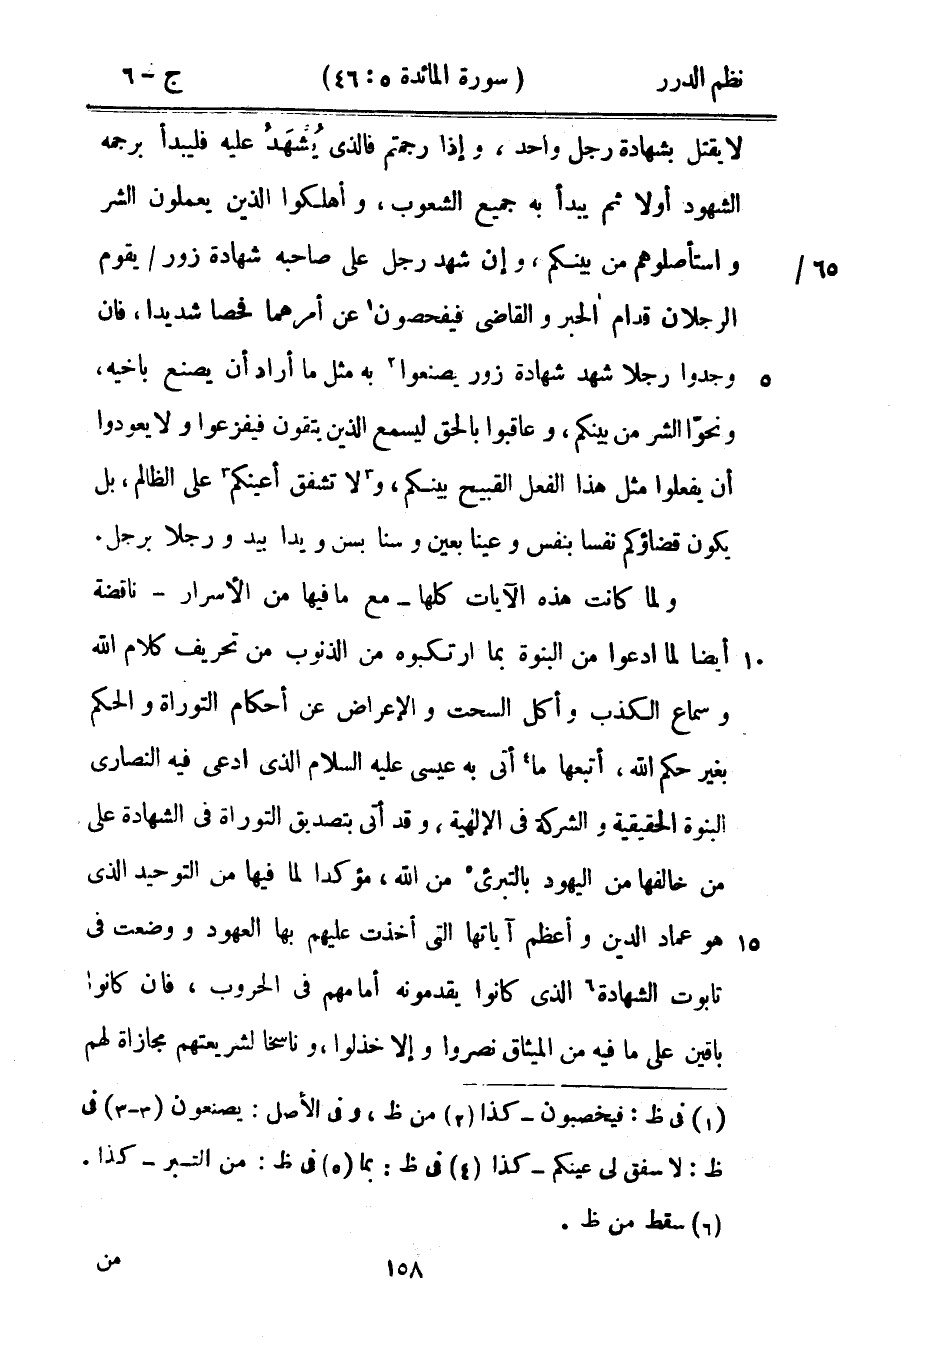 نظم الدرر ( سورة المائدة ٥ : ٤٦ ) ج – ٦
لا يقتل بشهادة رجل واحد ، و إذا رجمتم فالذى يُشهَدُ عليه فليبدأ برجمه
الشهود أولا ثم يبدأ به جميع الشعوب ، و أهلكوا الذين يعملون الشر
٦٥ / و استأصلوهم من بينكم ، و إن شهد رجل على صاحبه شهادة زور / يقوم
الرجلان قدام الحبر و القاضى فيفحصون١ عن أمرهما فحصا شديدا ، فان
٥ وجدوا رجلا شهد شهادة زور يصنعوا٢ به مثل ما أراد أن يصنع باخيه ،
و نحوّا الشر من بينكم ، و عاقبوا بالحق ليسمع الذين يتقون فيفزعوا و لا يعودوا
أن يفعلوا مثل هذا الفعل القبيح بينكم ، و٣لا تشفق أعينكم٣ على الظالم ، بل
يكون قضاؤكم نفسا بنفس و عينا بعين و سنا بسن و يدا بيد و رجلا برجل .
و لما كانت هذه الآيات كلها – مع ما فيها من الأسرار – ناقضة
١٠ أيضا لما ادعوا من البنوة بما ارتكبوه من الذنوب من تحريف كلام الله
و سماع الكذب و أكل السحت و الإعراض عن أحكام التوراة و الحكم
بغير حكم الله ، أتبعها ما٤ أتى به عيسى عليه السلام الذى ادعى فيه النصارى
البنوة الحقيقية و الشركة فى الإلهية ، و قد أتى بتصديق التوراة فى الشهادة على
من خالفها من اليهود بالتبرئ٥ من الله ، مؤكدا لما فيها من التوحيد الذى
١٥ هو عماد الدين و أعظم آياتها التى أخذت عليهم بها العهود و وضعت فى
تابوت الشهادة٦ الذى كانوا يقدمونه أمامهم فى الحروب ، فان كانوا
باقين على ما فيه من الميثاق نصروا و إلا خذلوا ، و ناسخا لشريعتهم مجازاة لهم
(١) فى ظ : فيخصبون – كذا (٢) من ظ ، و فى الأصل : يصنعون (٣-٣) فى
ظ : لا سفق لى عينكم – كذا (٤) فى ظ : بما (٥) فى ظ : من التبر – كذا .
(٦) سقط من ظ .
١٥٨ من